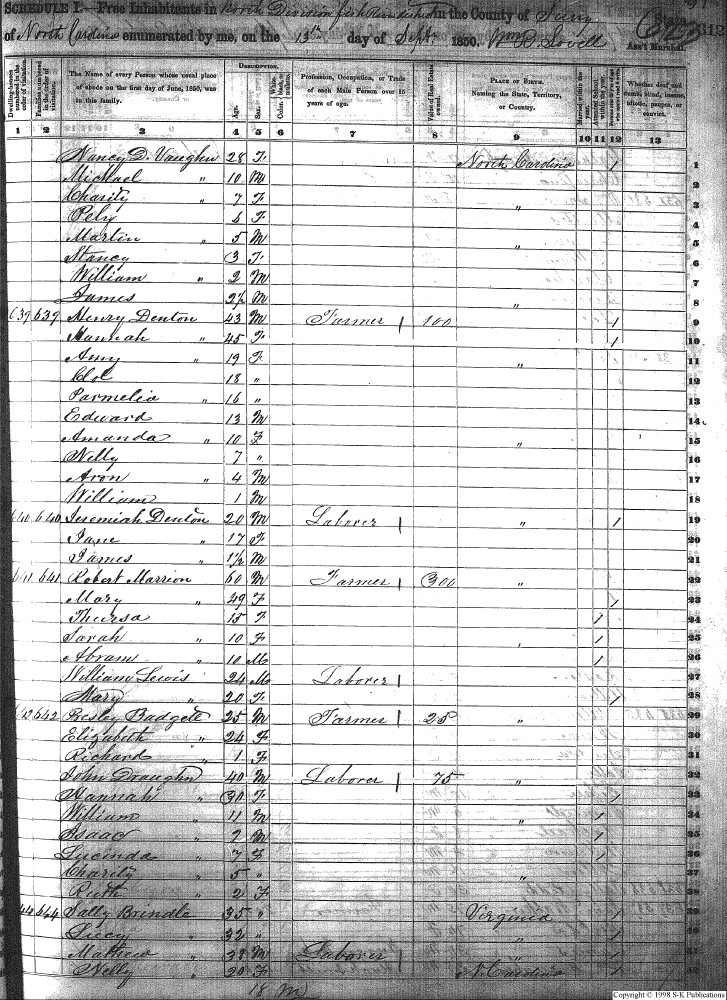 SCHEDULE I.—Free Inhabitants in North Division in the County of Surry State
of North Carolina enumerated by me, on the 13th day of Sept. 1850. Wm B. Lovell Ass't Marshal
Dwelling-houses numbered in the order of visitation.
Families numbered in the order of visitation.
The Name of every Person whose usual place of abode on the first day of June, 1850, was in this family.
DESCRIPTION.
Age.
Sex.
Color.
Profession, Occupation, or Trade of each Male Person over 15 years of age.
Value of Real Estate owned.
PLACE OF BIRTH.
Naming the State, Territory, or Country.
Whether deaf and dumb, blind, insane, idiotic, pauper, or convict.
1 2 3 4 5 6 7 8 9 10 11 12 13
Nancy D. Vaughn 28 F North Carolina / 1
Michael " 10 M 2
Charity " 7 F " 3
Pely 6 F 4
Martin " 5 M " 5
Nancy 3 F 6
William " 2 M 7
James M " 8
639 639 Henry Denton 43 M Farmer 100 / 9
Hannah " 45 F / 10
Amy " 19 F " 11
18 " 12
Parmelia " 16 " 13
Edward 13 M 14
Amanda " 10 F " 15
Nelly 7 " 16
Aron " 4 M 17
William 1 M 18
640 640 Jeremiah Denton 20 M Laborer " / 19
Jane " 17 F 20
James " 1/2 M 21
641 641 Robert Marrion 60 M Farmer 300 " 22
Mary " 49 F / 23
Thursa 15 F / 24
Sarah " 10 F " / 25
Abram " 10 M / 26
William Lewis 24 M Laborer 27
Mary " 20 F / 28
642 642 Presley Badgett 25 M Farmer 25 " 29
Elizabeth " 24 F 30
Richard " 1 F 31
John Draughn 40 M Laborer 75 " 32
Hannah " 30 F / 33
William " 11 M " / 34
Isaac " 9 M / 35
Lucinda " 7 F / 36
Charity " 5 " " 37
Ruth " 2 F 38
644 Sally Brindle 35 " Virginia / 39
Lucy " 32 " " / 40
Mathew " M Laborer " / 41
Nelly " 20 F N. Carolina / 42
18 M
Copyright © 1998 S-K Publications